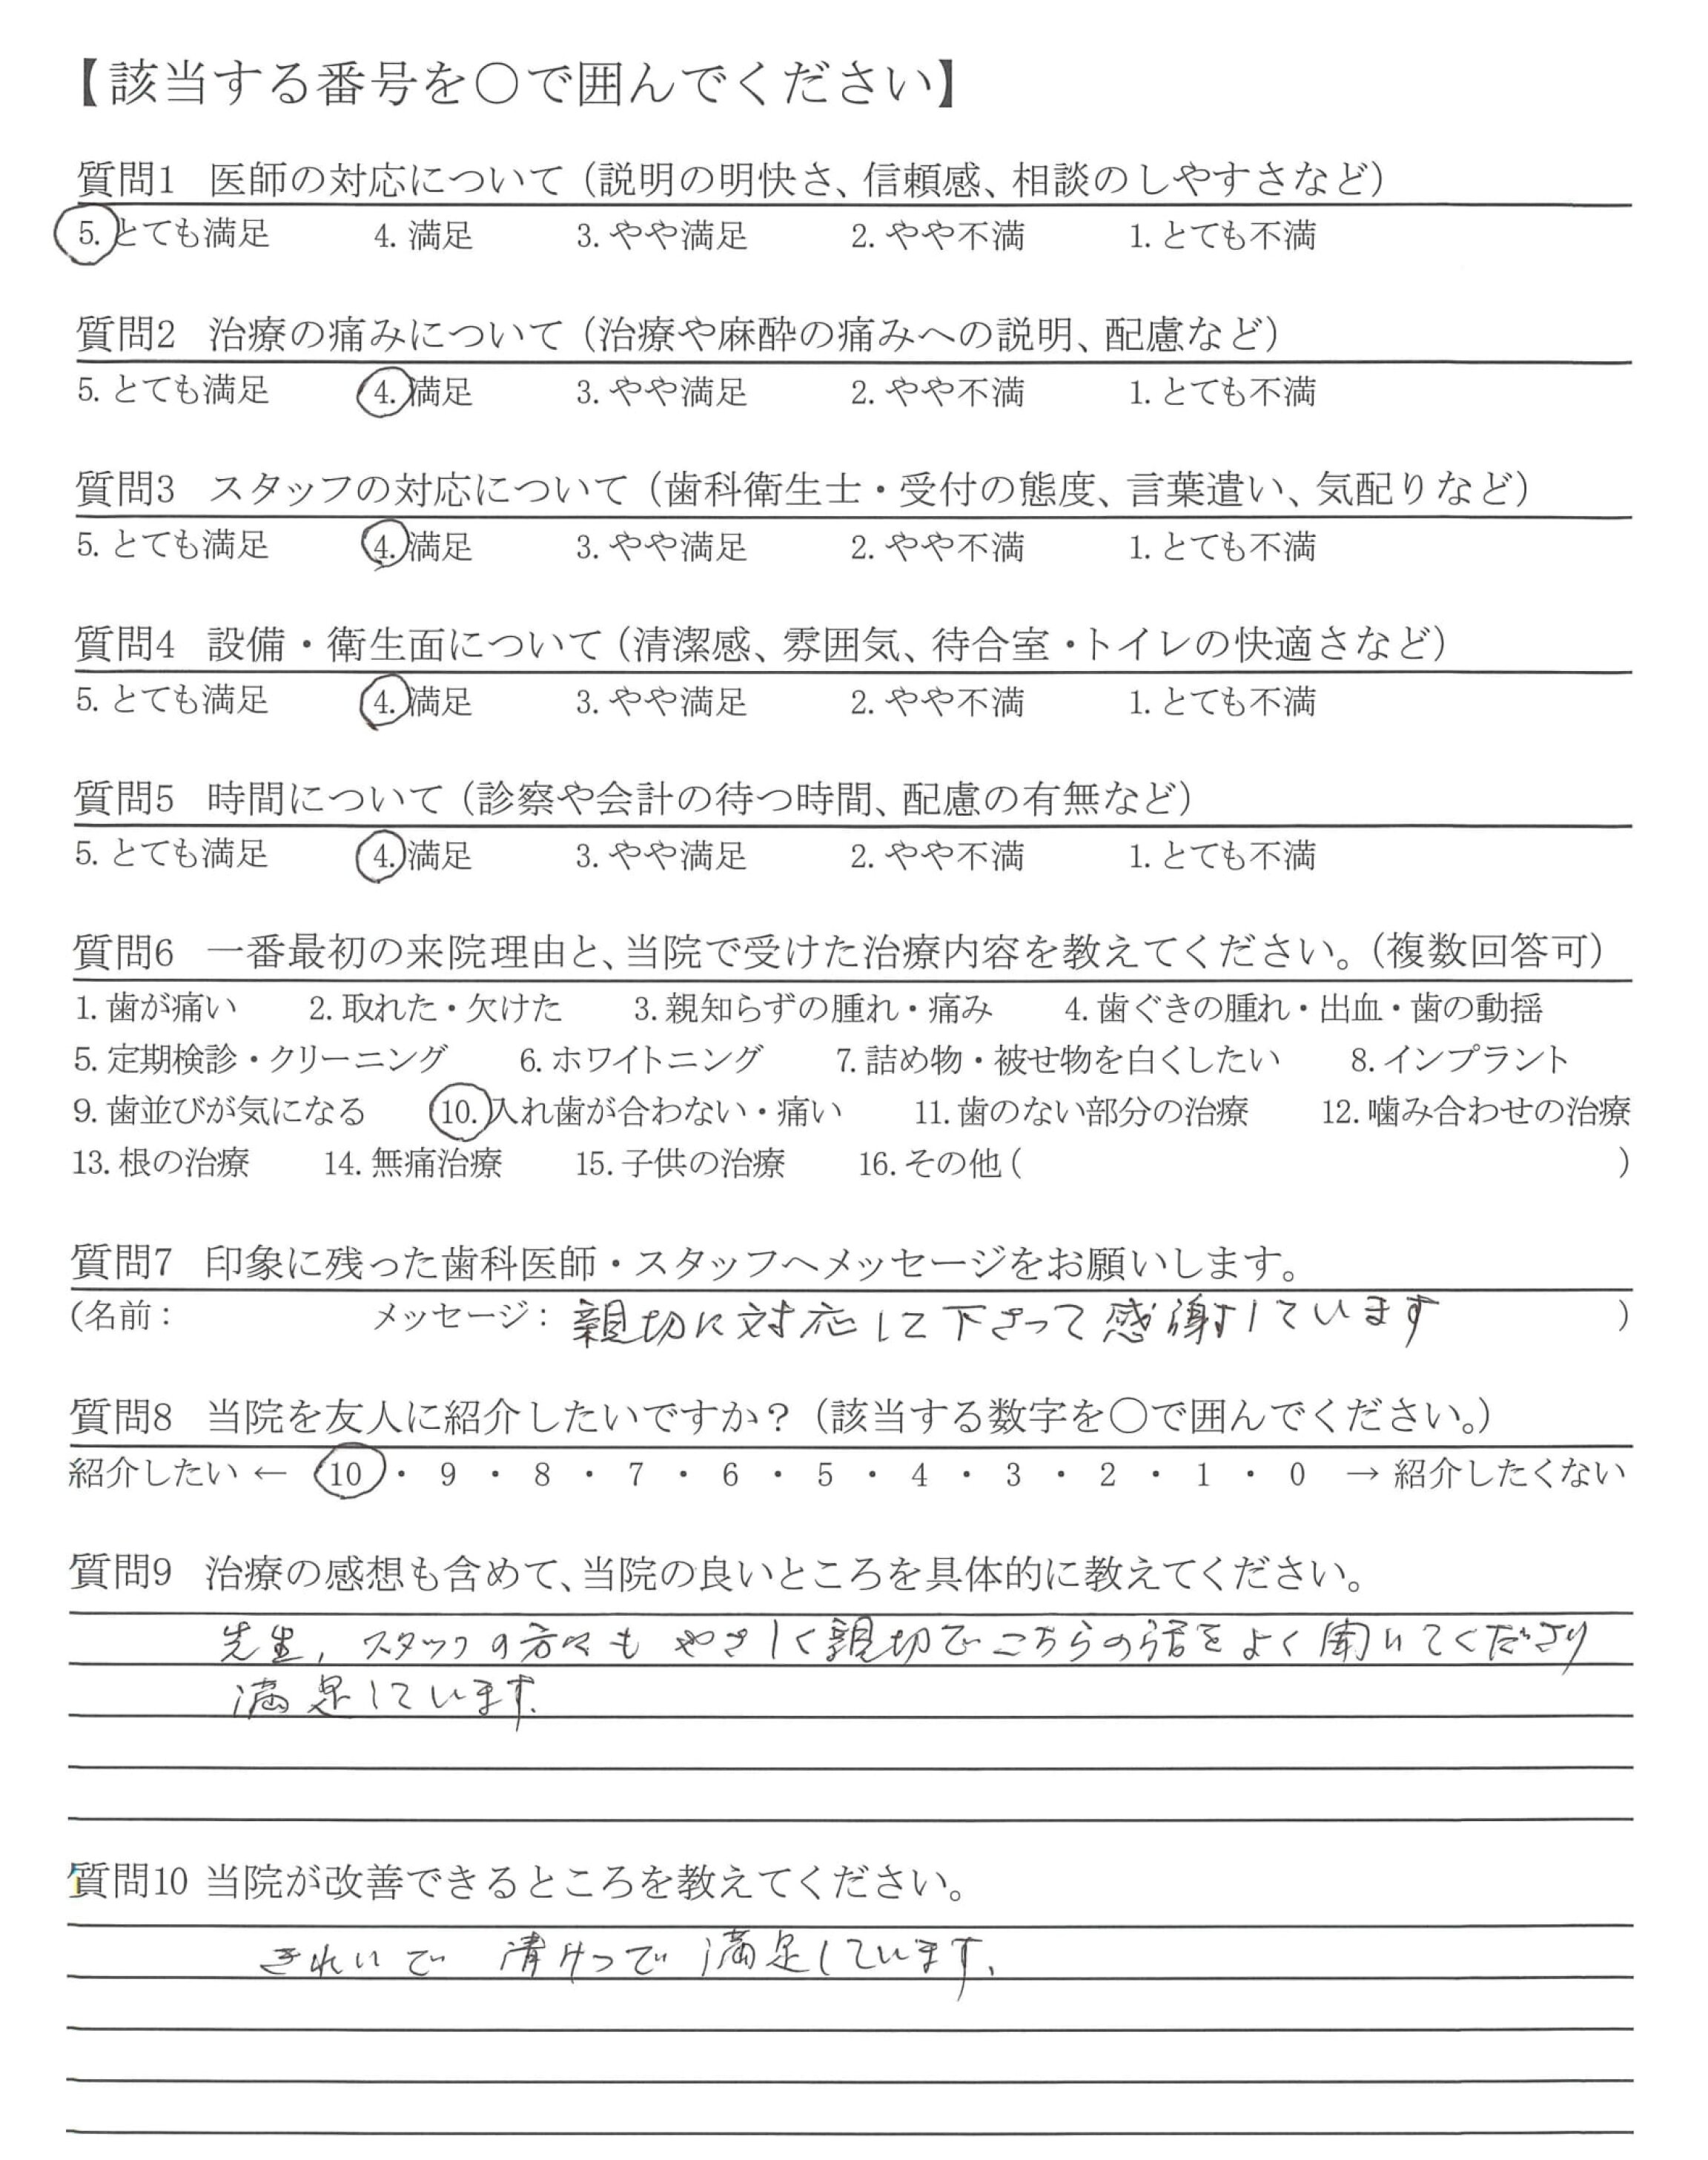 【該当する番号を〇で囲んでください】
質問1 医師の対応について（説明の明快さ、信頼感、相談のしやすさなど）
5. とても満足 4. 満足 3. やや満足 2. やや不満 1. とても不満
質問2 治療の痛みについて（治療や麻酔の痛みへの説明、配慮など）
5. とても満足 4. 満足 3. やや満足 2. やや不満 1. とても不満
質問3 スタッフの対応について（歯科衛生士・受付の態度、言葉遣い、気配りなど）
5. とても満足 4. 満足 3. やや満足 2. やや不満 1. とても不満
質問4 設備・衛生面について（清潔感、雰囲気、待合室・トイレの快適さなど）
5. とても満足 4. 満足 3. やや満足 2. やや不満 1. とても不満
質問5 時間について（診察や会計の待つ時間、配慮の有無など）
5. とても満足 4. 満足 3. やや満足 2. やや不満 1. とても不満
質問6 一番最初の来院理由と、当院で受けた治療内容を教えてください。（複数回答可）
1. 歯が痛い 2. 取れた・欠けた 3. 親知らずの腫れ・痛み 4. 歯ぐきの腫れ・出血・歯の動揺
5. 定期検診・クリーニング 6. ホワイトニング 7. 詰め物・被せ物を白くしたい 8. インプラント
9. 歯並びが気になる 10. 入れ歯が合わない・痛い 11. 歯のない部分の治療 12. 噛み合わせの治療
13. 根の治療 14. 無痛治療 15. 子供の治療 16. その他（ ）
質問7 印象に残った歯科医師・スタッフへメッセージをお願いします。
（名前： メッセージ：親切に対応して下さって感謝しています ）
質問8 当院を友人に紹介したいですか？（該当する数字を〇で囲んでください。）
紹介したい ← 10 ・ 9 ・ 8 ・ 7 ・ 6 ・ 5 ・ 4 ・ 3 ・ 2 ・ 1 ・ 0 → 紹介したくない
質問9 治療の感想も含めて、当院の良いところを具体的に教えてください。
先生、スタッフの方々も やさしく親切でこちらの話をよく聞いてくださり
満足しています.
質問10 当院が改善できるところを教えてください。
きれいで 清けつで 満足しています、